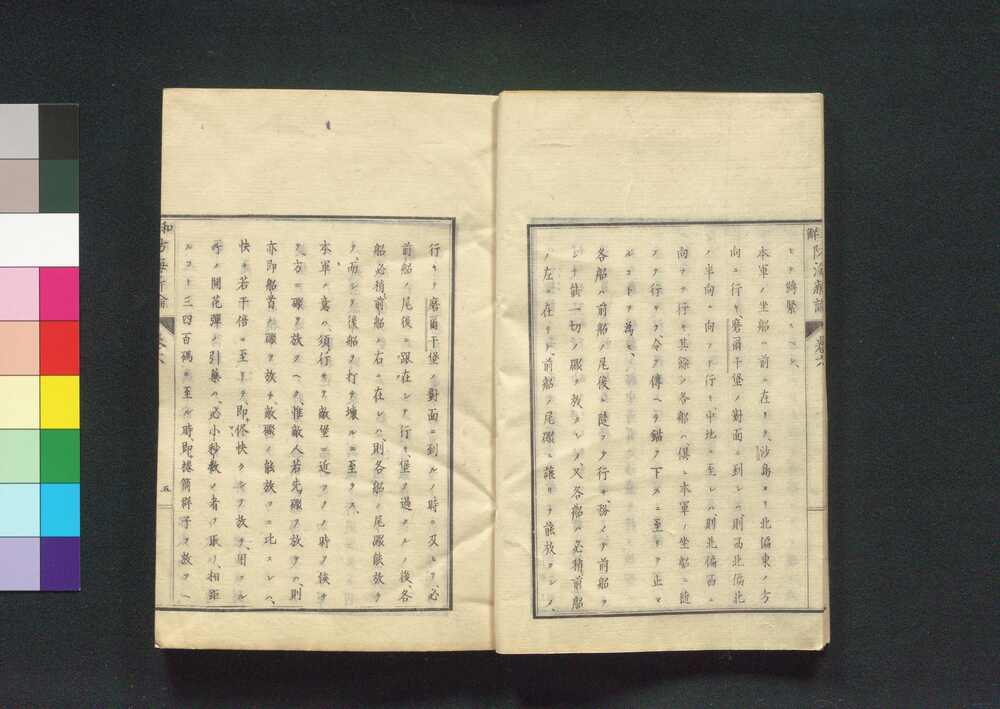 本軍ノ坐船ハ前ニ在リテ、沙島ヨリ北偏東ノ方
向ニ行キ、磨爾干堡ノ對面ニ到レハ、則西北偏北
ノ半向ニ向フテ行キ、中地ニ至レハ、則北偏西ニ
向フテ行キ、其餘ノ各船ハ、俱ニ本軍ノ坐船ニ隨
フテ行キ、令ヲ傳ヘテ錨ヲ下スニ至リテ止マ
ルコトヲ為セ、
各船ハ前船ノ尾後ニ隨フテ行キ、務メテ前船ヲ
シテ能ク一切ノ礮ヲ放タシメ、又各船ハ必稍前船
ノ左ニ在リテ、前船ノ尾礮ニ讓リテ能放タシメ、
行キテ磨爾干堡ノ對面ニ到ルノ時ニ及ヒテ、必
前船ノ尾後ニ跟在シテ行キ、堡ヲ過クルノ後、各
船必稍前船ノ右ニ在レハ、則各船ノ尾礮能放ツ
テ、而シテ後船ヲ打チ壞ルニ至ラス、
本軍ノ意ハ、須行キテ敵堡ニ近ツクノ時ヲ俟チ
テ、方ニ礮ヲ放ツヘシ、惟敵人若先礮ヲ放タハ、則
亦即船首ノ礮ヲ放チ、敵礮ノ能放ツニ比スレハ、
快キ若干倍ニ至リテ、即儘快クシテ放チ、用フル
所ノ開花彈ノ引藥ハ、必小秒數ノ者ヲ取リ、相距
ルコト三四百碼ニ至ル時、即榴筒群子ヲ放ツヘ
五